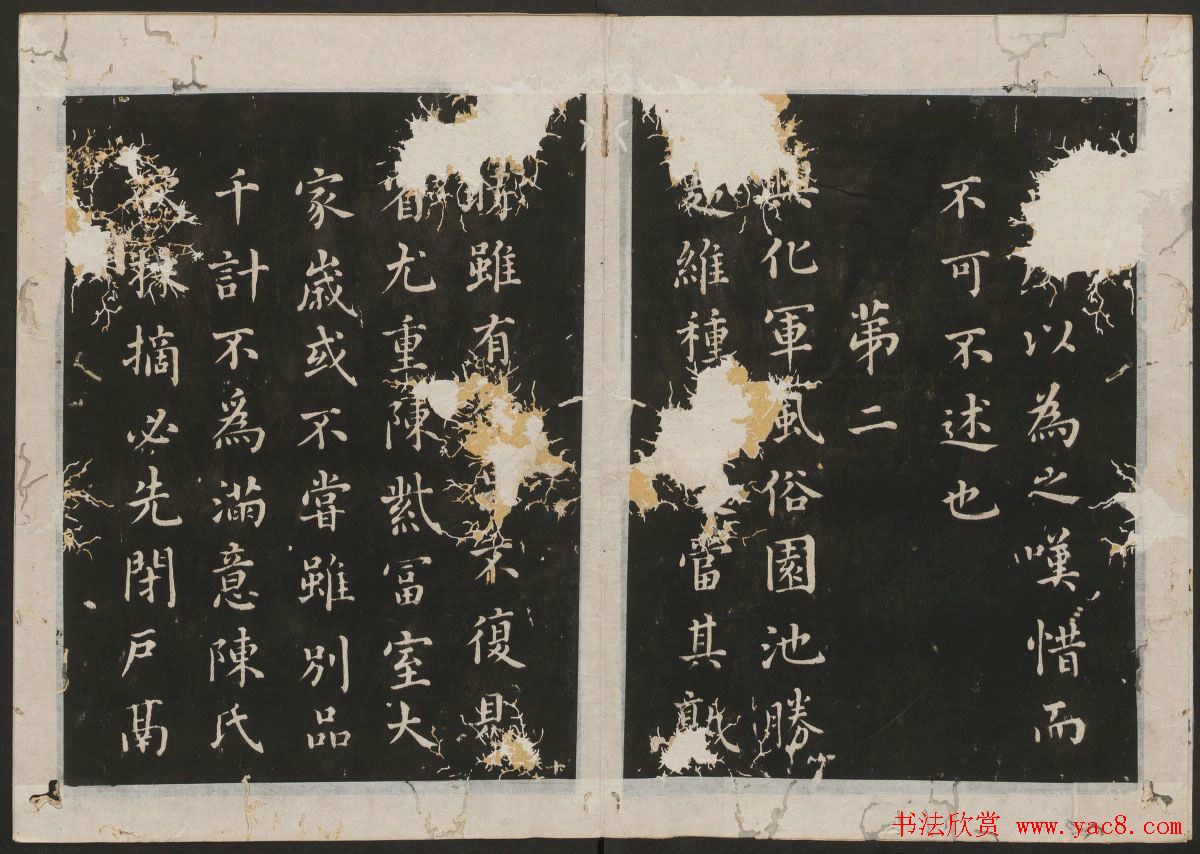 以為之嘆惜而
不可不述也
苐二
興化軍風俗園池勝
處維種當其熟
時雖有果不復見
省尤重陳紫富室大
家歲或不嘗雖別品
千計不為滿意陳氏
欲採摘必先閉戶鬲
书法欣赏 www.yac8.com